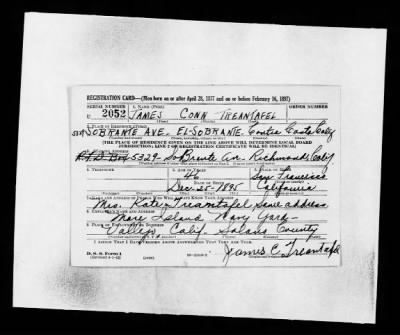 REGISTRATION CARD—(Men born on or after April 28, 1877 and on or before February 16, 1897)
SERIAL NUMBER 1. NAME (Print) ORDER NUMBER
U 2052 JAMES CONN TREANTAFEL
2. PLACE OF RESIDENCE (Print)
5329 SOBRANTE AVE. EL-SOBRANTE. Contra Costa Calif
[THE PLACE OF RESIDENCE GIVEN ON THE LINE ABOVE WILL DETERMINE LOCAL BOARD
JURISDICTION; LINE 2 OF REGISTRATION CERTIFICATE WILL BE IDENTICAL]
3. MAILING ADDRESS
5329 Sobrante Av. Richmond Calif
4. TELEPHONE 5. AGE IN YEARS 6. PLACE OF BIRTH
46 San Francisco
DATE OF BIRTH
Dec. 25 - 1895 California
7. NAME AND ADDRESS OF PERSON WHO WILL ALWAYS KNOW YOUR ADDRESS
Mrs. Kate Treantafel Same address
8. EMPLOYER'S NAME AND ADDRESS
Mare Island Navy Yard
9. PLACE OF EMPLOYMENT OR BUSINESS
Vallejo Calif. Solano County
I AFFIRM THAT I HAVE VERIFIED ABOVE ANSWERS AND THAT THEY ARE TRUE.
D. S. S. Form 1
James C. Treantafel